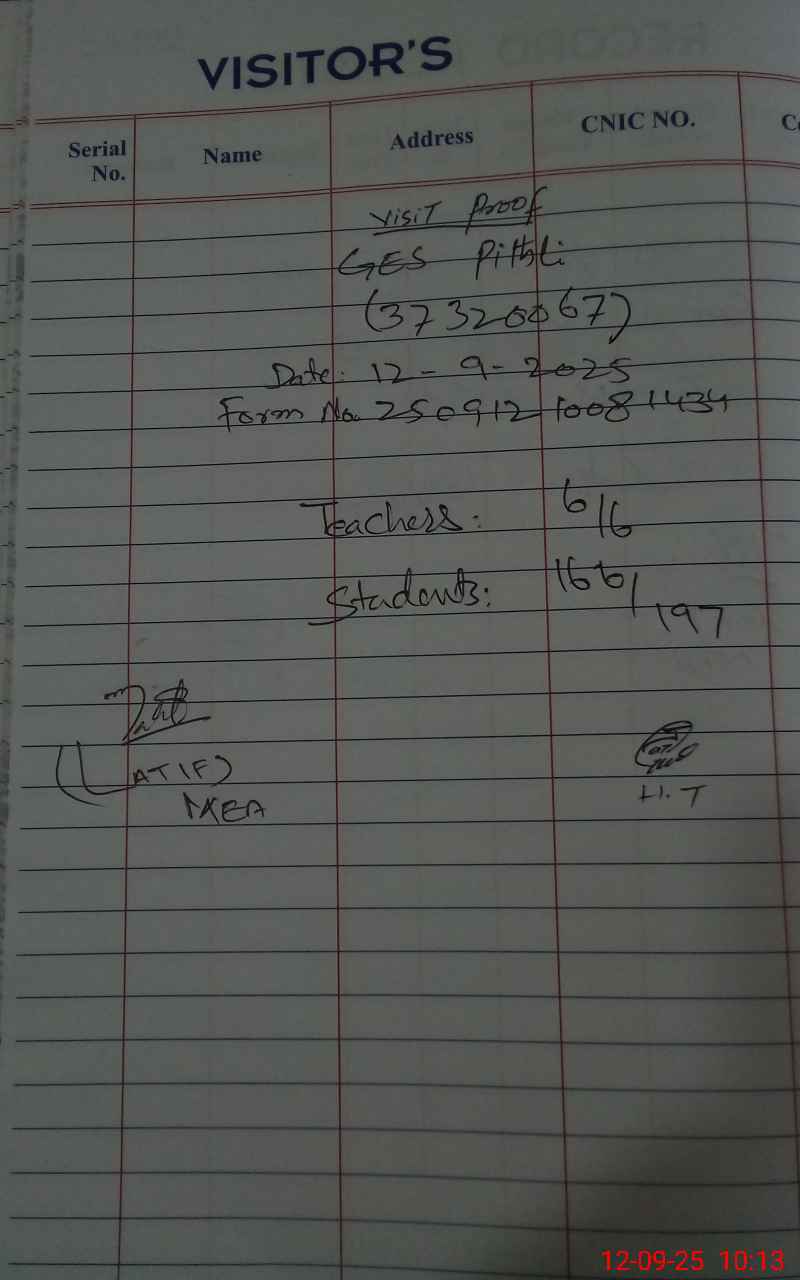 VISITOR'S
Serial No. Name Address CNIC NO.
Visit Proof
GES Pithli
(37320067)
Date: 12-9-2025
Form No. 250912 10081434
Teachers: 6/6
Students: 166/197
(LATIF)
MEA
H.T
12-09-25 10:13